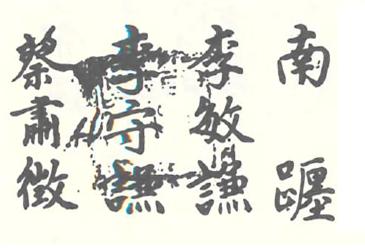 南躔
李敏謙
李守謙
蔡肅徵